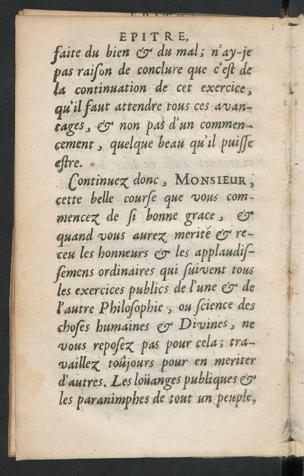 EPITRE.
faite du bien & du mal; n'ay-je
pas raison de conclure que c'est de
la continuation de cet exercice,
qu'il faut attendre tous ces avan-
tages, & non pas d'un commen-
cement, quelque beau qu'il puisse
estre.
Continuez donc, MONSIEUR,
cette belle course que vous com-
mencez de si bonne grace, &
quand vous aurez merité & re-
ceu les honneurs & les applaudis-
semens ordinaires qui suivent tous
les exercices publics de l'une & de
l'autre Philosophie, ou science des
choses humaines & Divines, ne
vous reposez pas pour cela; tra-
vaillez toûjours pour en meriter
d'autres. Les loüanges publiques &
les paranimphes de tout un peuple,